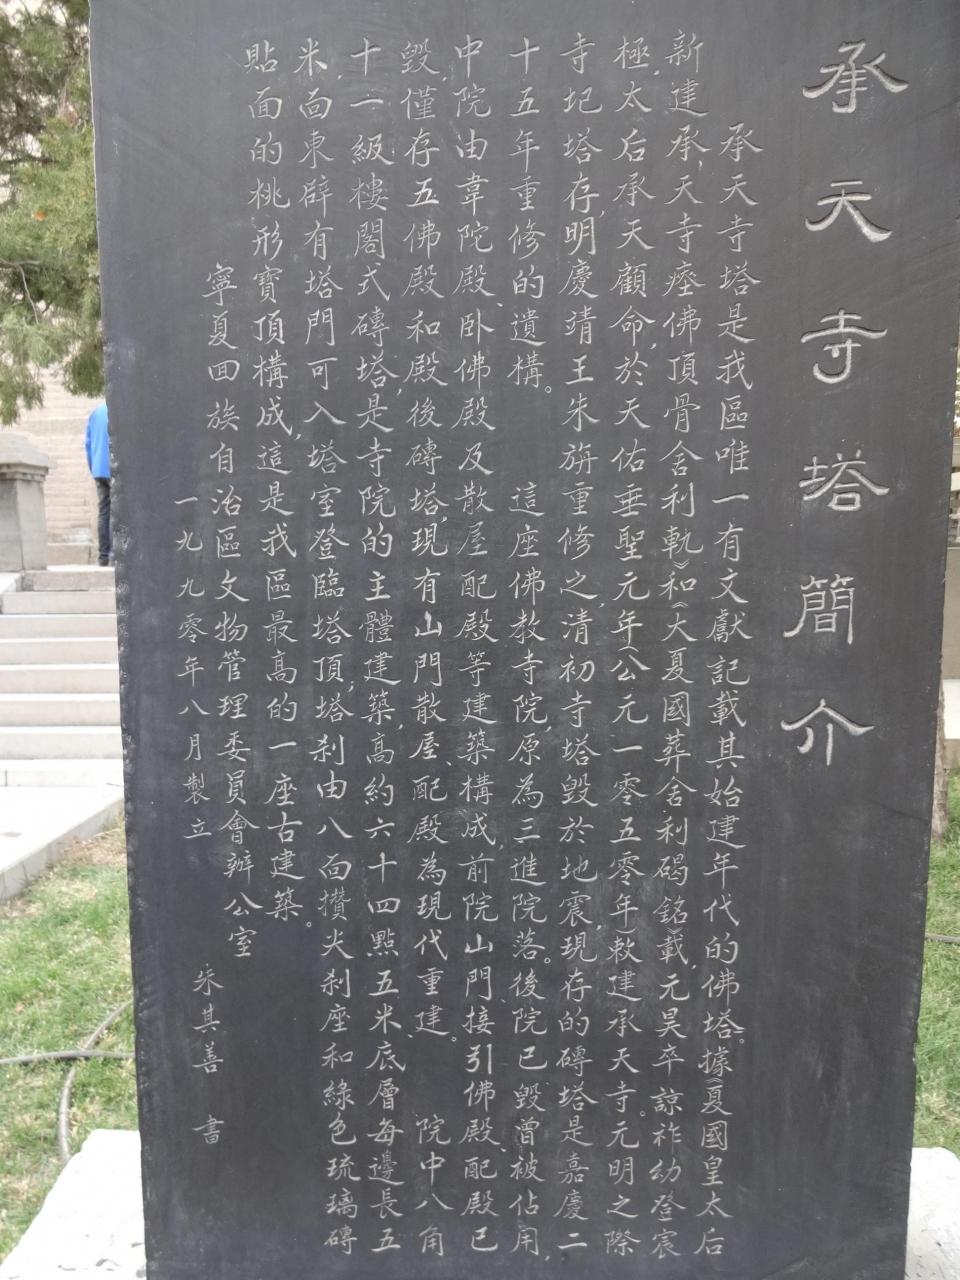 承天寺塔簡介
承天寺塔是我區唯一有文獻記載其始建年代的佛塔。據《夏國皇太后
新建承天寺瘞佛頂骨舍利軌》和《大夏國葬舍利碣銘》載,元昊卒諒祚幼登宸
極,太后承天顧命,於天佑垂聖元年(公元一零五零年)敕建承天寺。元明之際
寺圮塔存,明慶靖王朱旃重修之,清初寺塔毀於地震,現存的磚塔是嘉慶二
十五年重修的遺構。 這座佛教寺院,原為三進院落。後院已毀曾被佔用,
中院由韋陀殿、卧佛殿及散屋配殿等建築構成,前院山門接引佛殿、配殿已
毀,僅存五佛殿和殿後磚塔,現有山門散屋、配殿為現代重建。 院中八角
十一級樓閣式磚塔,是寺院的主體建築,高約六十四點五米、底層每邊長五
米,面東辟有塔門可入塔室登臨塔頂,塔刹由八面攢尖刹座和綠色琉璃磚
貼面的桃形寶頂構成,這是我區最高的一座古建築。
寧夏回族自治區文物管理委員會辦公室
一九九零年八月製立
朱其善 書